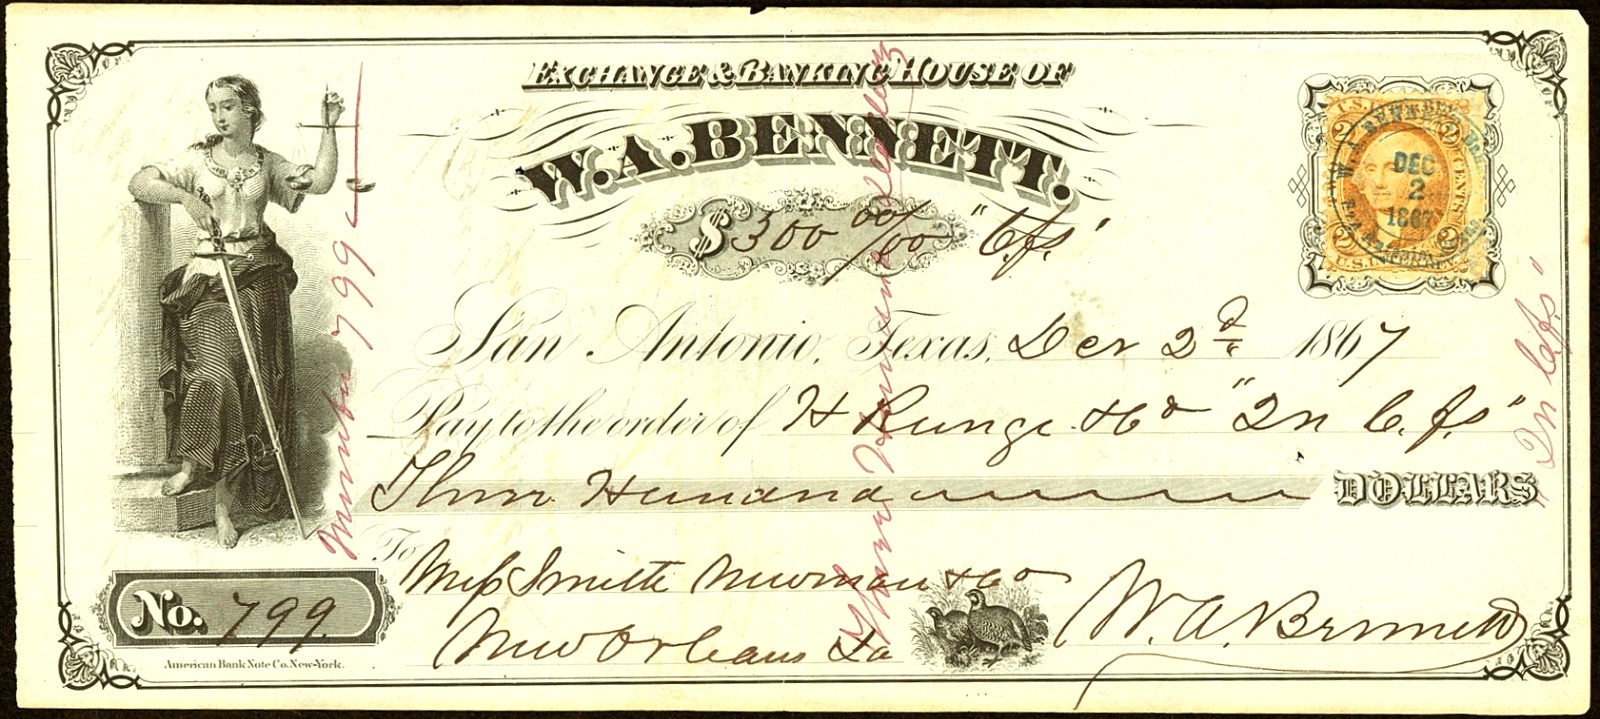 EXCHANGE & BANKING HOUSE OF
W.A. BENNETT.
$ 300 00/00 "C.fs"
U.S. 2 2 CENTS
DEC
2
1867
San Antonio, Texas, Dec 2d 1867
Pay to the order of H Runge & Co "In C.fs"
Three Hundred DOLLARS
To Mess Smith Newman & Co
New Orleans La
W.A. Bennett
No. 799.
American Bank Note Co. New-York.
Number 799
Three Hundred Dollars
"In C.fs"